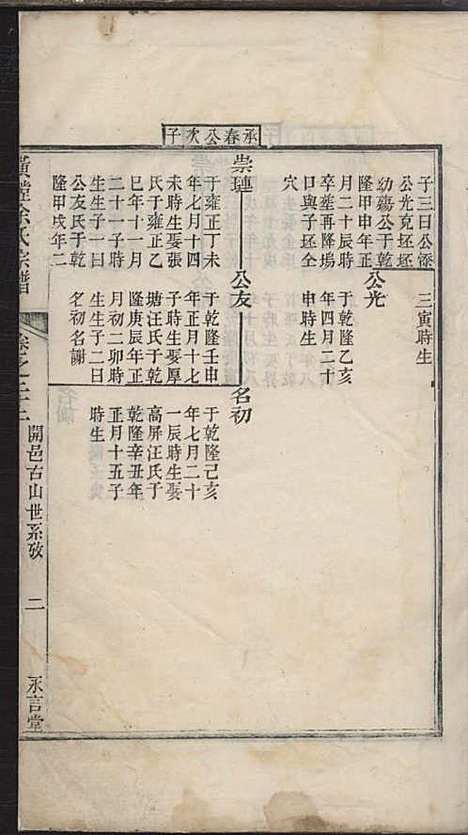 承春公次子
子三曰公添
公光克坯坯
幼殤公于乾
隆甲申年正
月二十辰時
卒塟再降塢
口與子坯仝
穴
三寅時生
公光
于乾隆乙亥
年四月二十
申時生
崇璉
于雍正丁未
年七月十四
未時生娶張
氏于雍正乙
巳年十一月
二十一子時
生生子一曰
公友氏于乾
隆甲戌年二
公友
于乾隆壬申
年正月十七
子時生娶厚
塘汪氏于乾
隆庚辰年正
月初二卯時
生生子二曰
名初名謝
名初
于乾隆己亥
年七月二十
一辰時生娶
高屏汪氏于
乾隆辛丑年
正月十五子
時生
余氏宗譜
卷之三十三
開邑古山世系攷
二
永言堂